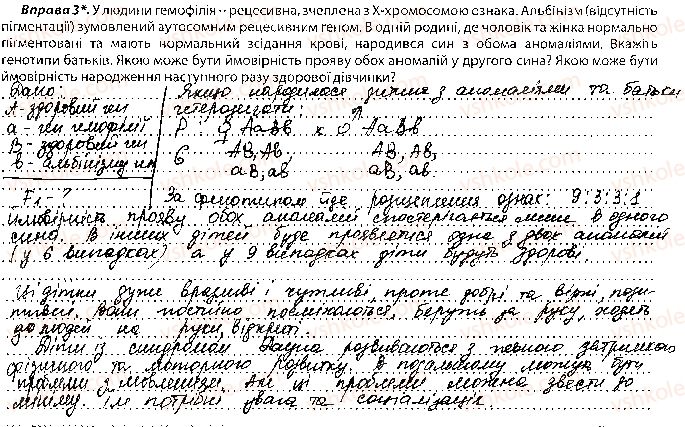 Вправа 3*. У людини гемофілія – рецесивна, зчеплена з Х-хромосомою ознака. Альбінізм (відсутність
пігментації) зумовлений аутосомним рецесивним геном. В одній родині, де чоловік та жінка нормально
пігментовані та мають нормальний зсідання крові, народився син з обома аномаліями. Вкажіть
генотипи батьків. Якою може бути ймовірність прояву обох аномалій у другого сина? Якою може бути
ймовірність народження наступного разу здорової дівчинки?
Дано: Якщо народилося дитина з аномаліями та батьки
А - здоровий ген гетерозиготи:
а - ген гемофілії Р: ♀ АаВв х ♂ АаВв
В - здоровий ген G АВ, Ав, АВ, Ав,
в - альбінізму ген аВ, ав аВ, ав
F1 - ? За фенотипом йде розщеплення ознак: 9:3:3:1
Ймовірність прояву обох аномалій спостерігається лише в одного
сина. В інших дітей буде проявлятися одна з двох аномалій
(у 6 випадках) а у 9 випадках діти будуть здорові
Ці дітки дуже вразливі і чутливі, проте добрі та вірні, пози-
тивні. Вони постійно посміхаються, беруть за руку, ходять
до людей на руки, відкриті.
Діти із синдромом Дауна розвиваються з певною затримкою
фізичного та моторного розвитку. В подальшому можуть бути
проблеми з мовленням. Але ці проблеми можна звести до
мінімуму. Їм потрібні увага та соціалізація.
vshkole.com